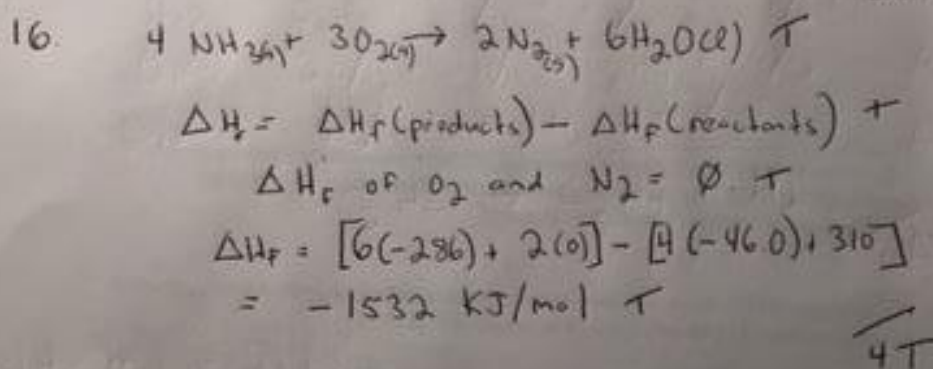 16. 4 NH3(g) + 3O2(g) → 2N2(g) + 6H2O(l) T
ΔH = ΔHf (products) - ΔHf (reactants) T
ΔHf of O2 and N2 = Ø T
ΔHf = [6(-286) + 2(0)] - [4(-46.0) + 3(0)]
= -1532 KJ/mol T
/4T